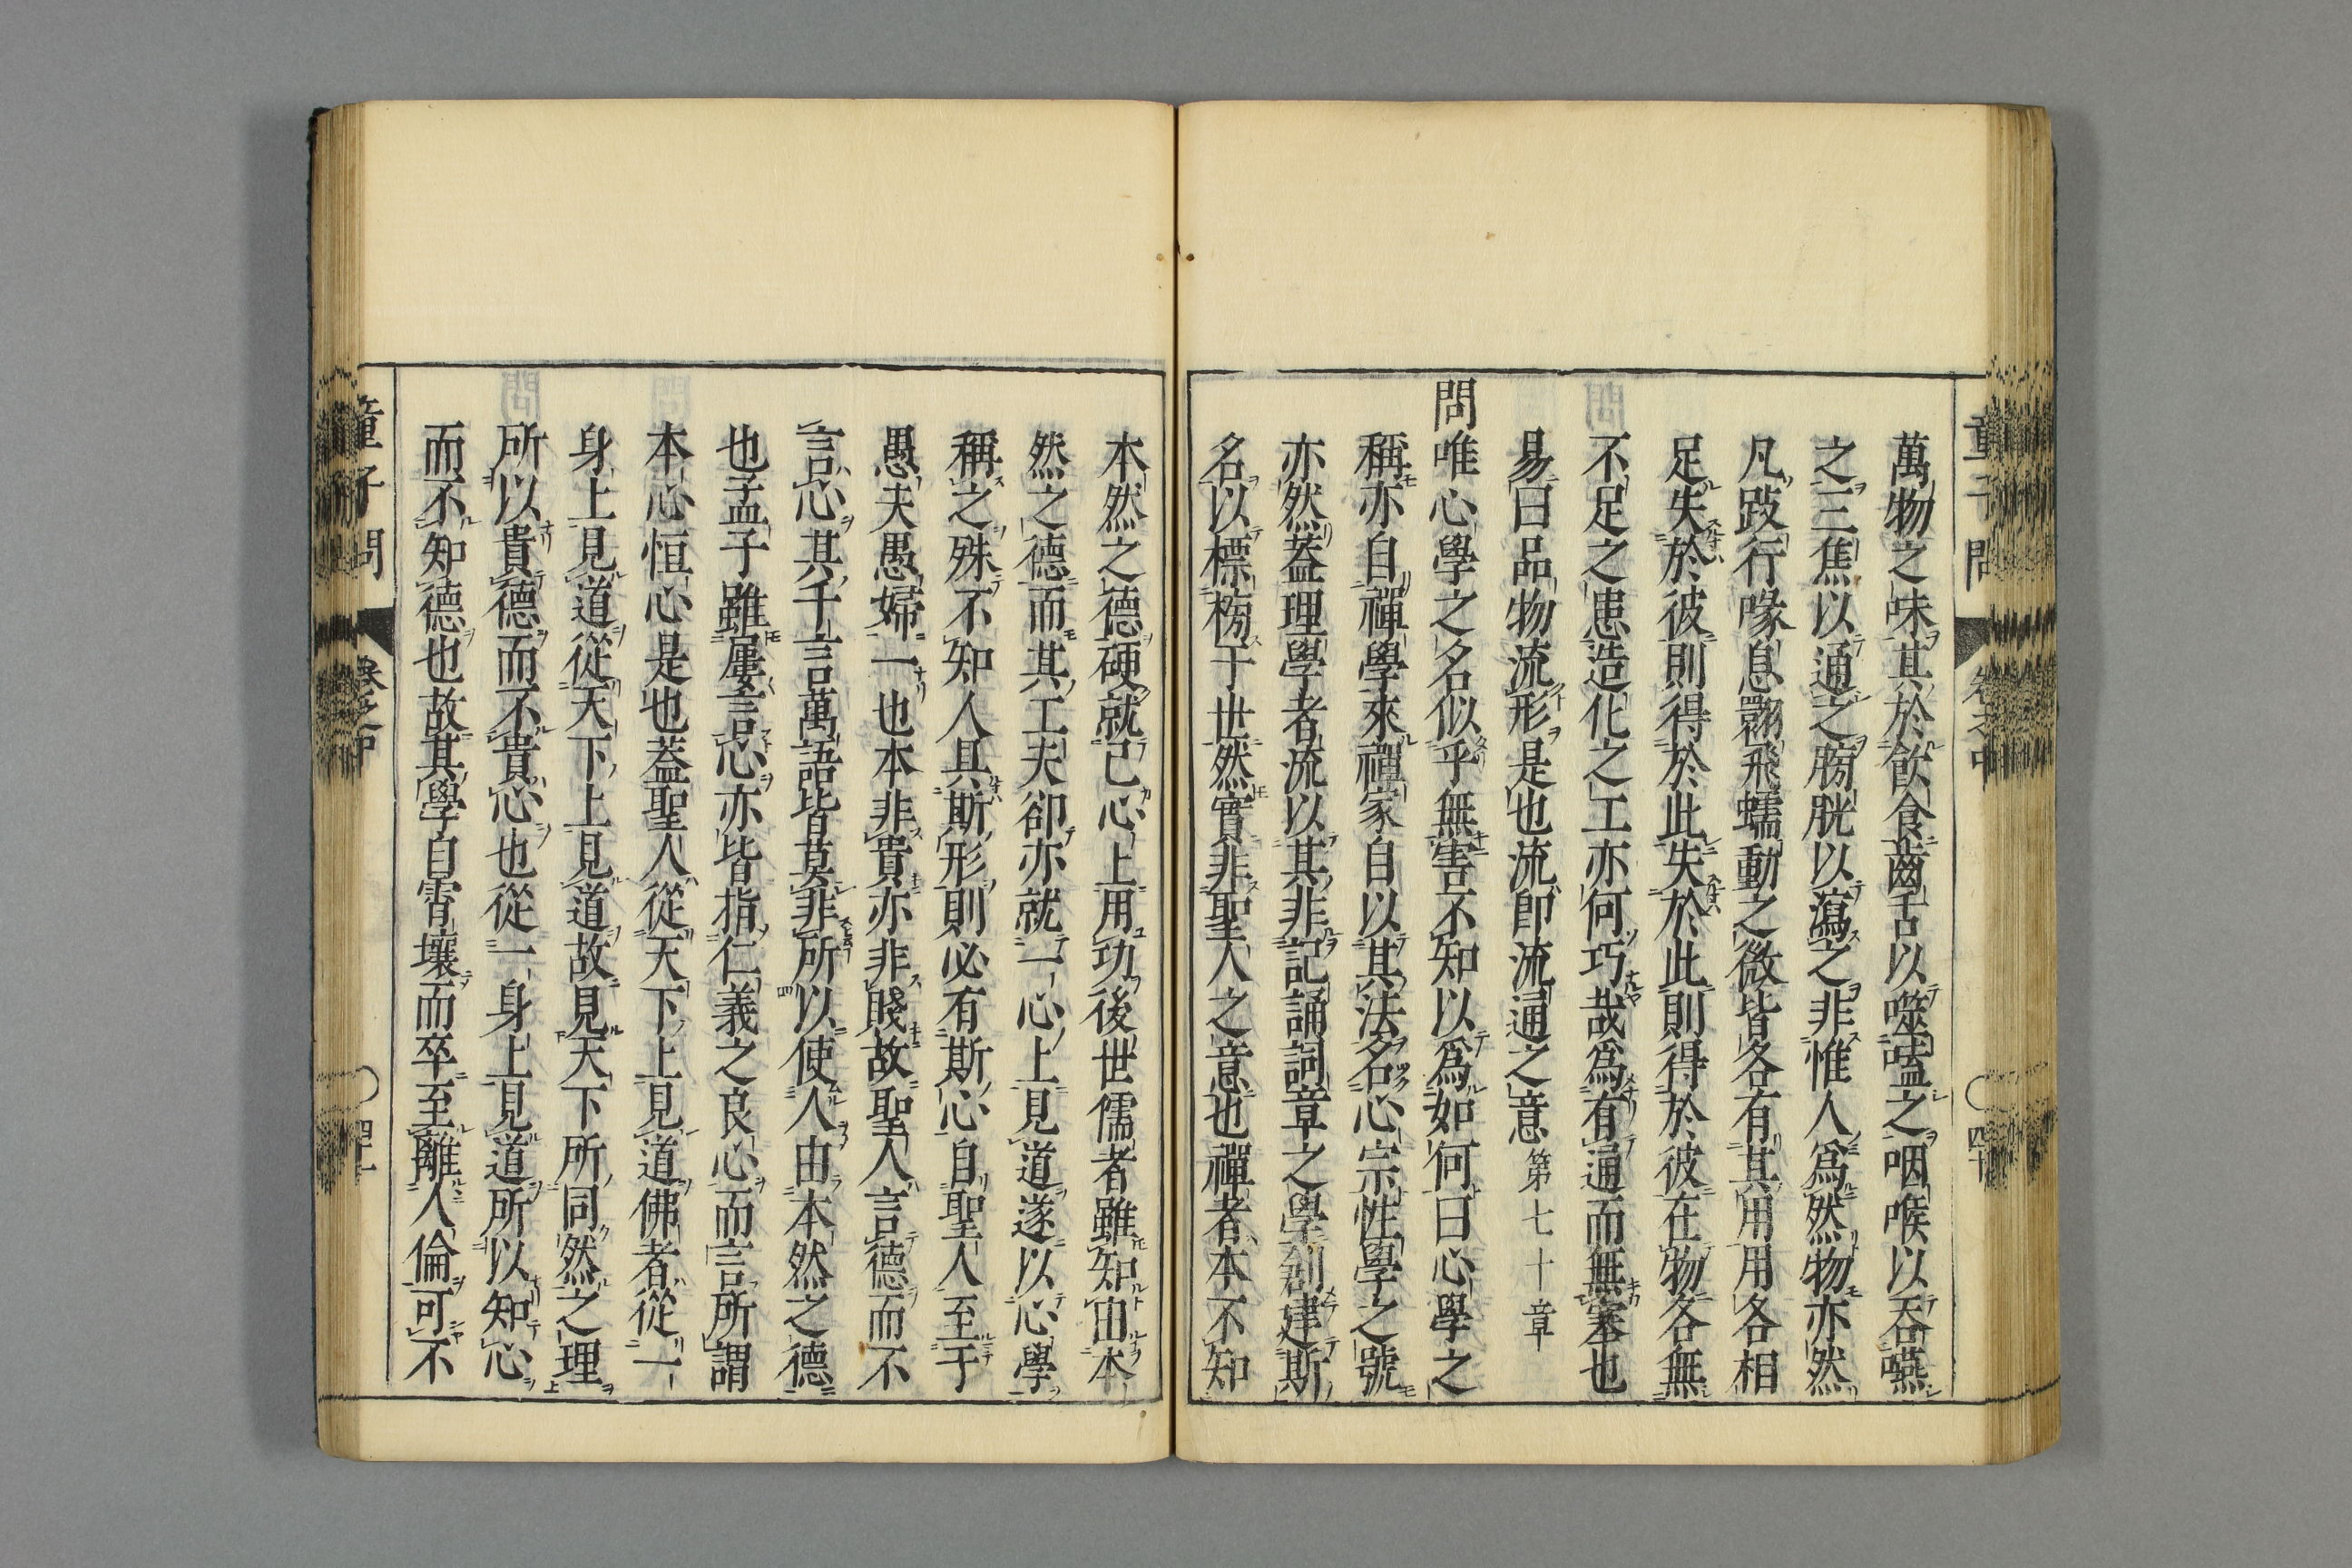 童子問 卷之中 四十
萬物之味其於飮食齒舌以噬嗑之咽喉以吞嚥
之三焦以通之膀胱以瀉之非惟人爲然物亦然
凡跂行喙息翾飛蠕動之微皆各有其用用各相
足失於彼則得於此失於此則得於彼在物各無
不足之患造化之工亦何巧哉爲有通而無塞也
易曰品物流形是也流卽流通之意 第七十章
問唯心學之名似乎無害不知以爲如何曰心學之
稱亦自禪學來禪家自以其法名心宗性學之號
亦然蓋理學者流以其非記誦詞章之學創建斯
名以標榜于世然實非聖人之意也禪者本不知
本然之德硬就己心上用功後世儒者雖知由本
然之德而其工夫卻亦就一心上見道遂以心學
稱之殊不知人具斯形則必有斯心自聖人至于
愚夫愚婦一也本非貴亦非賤故聖人言德而不
言心其千言萬語皆莫非所以使人由本然之德
也孟子雖屢言心亦皆指仁義之良心而言所謂
本心恒心是也蓋聖人從天下上見道佛者從一
身上見道從天下上見道故見天下所同然之理
所以貴德而不貴心也從一身上見道所以知心
而不知德也故其學自霄壤而卒至離人倫可不
童子問 卷之中 四十一